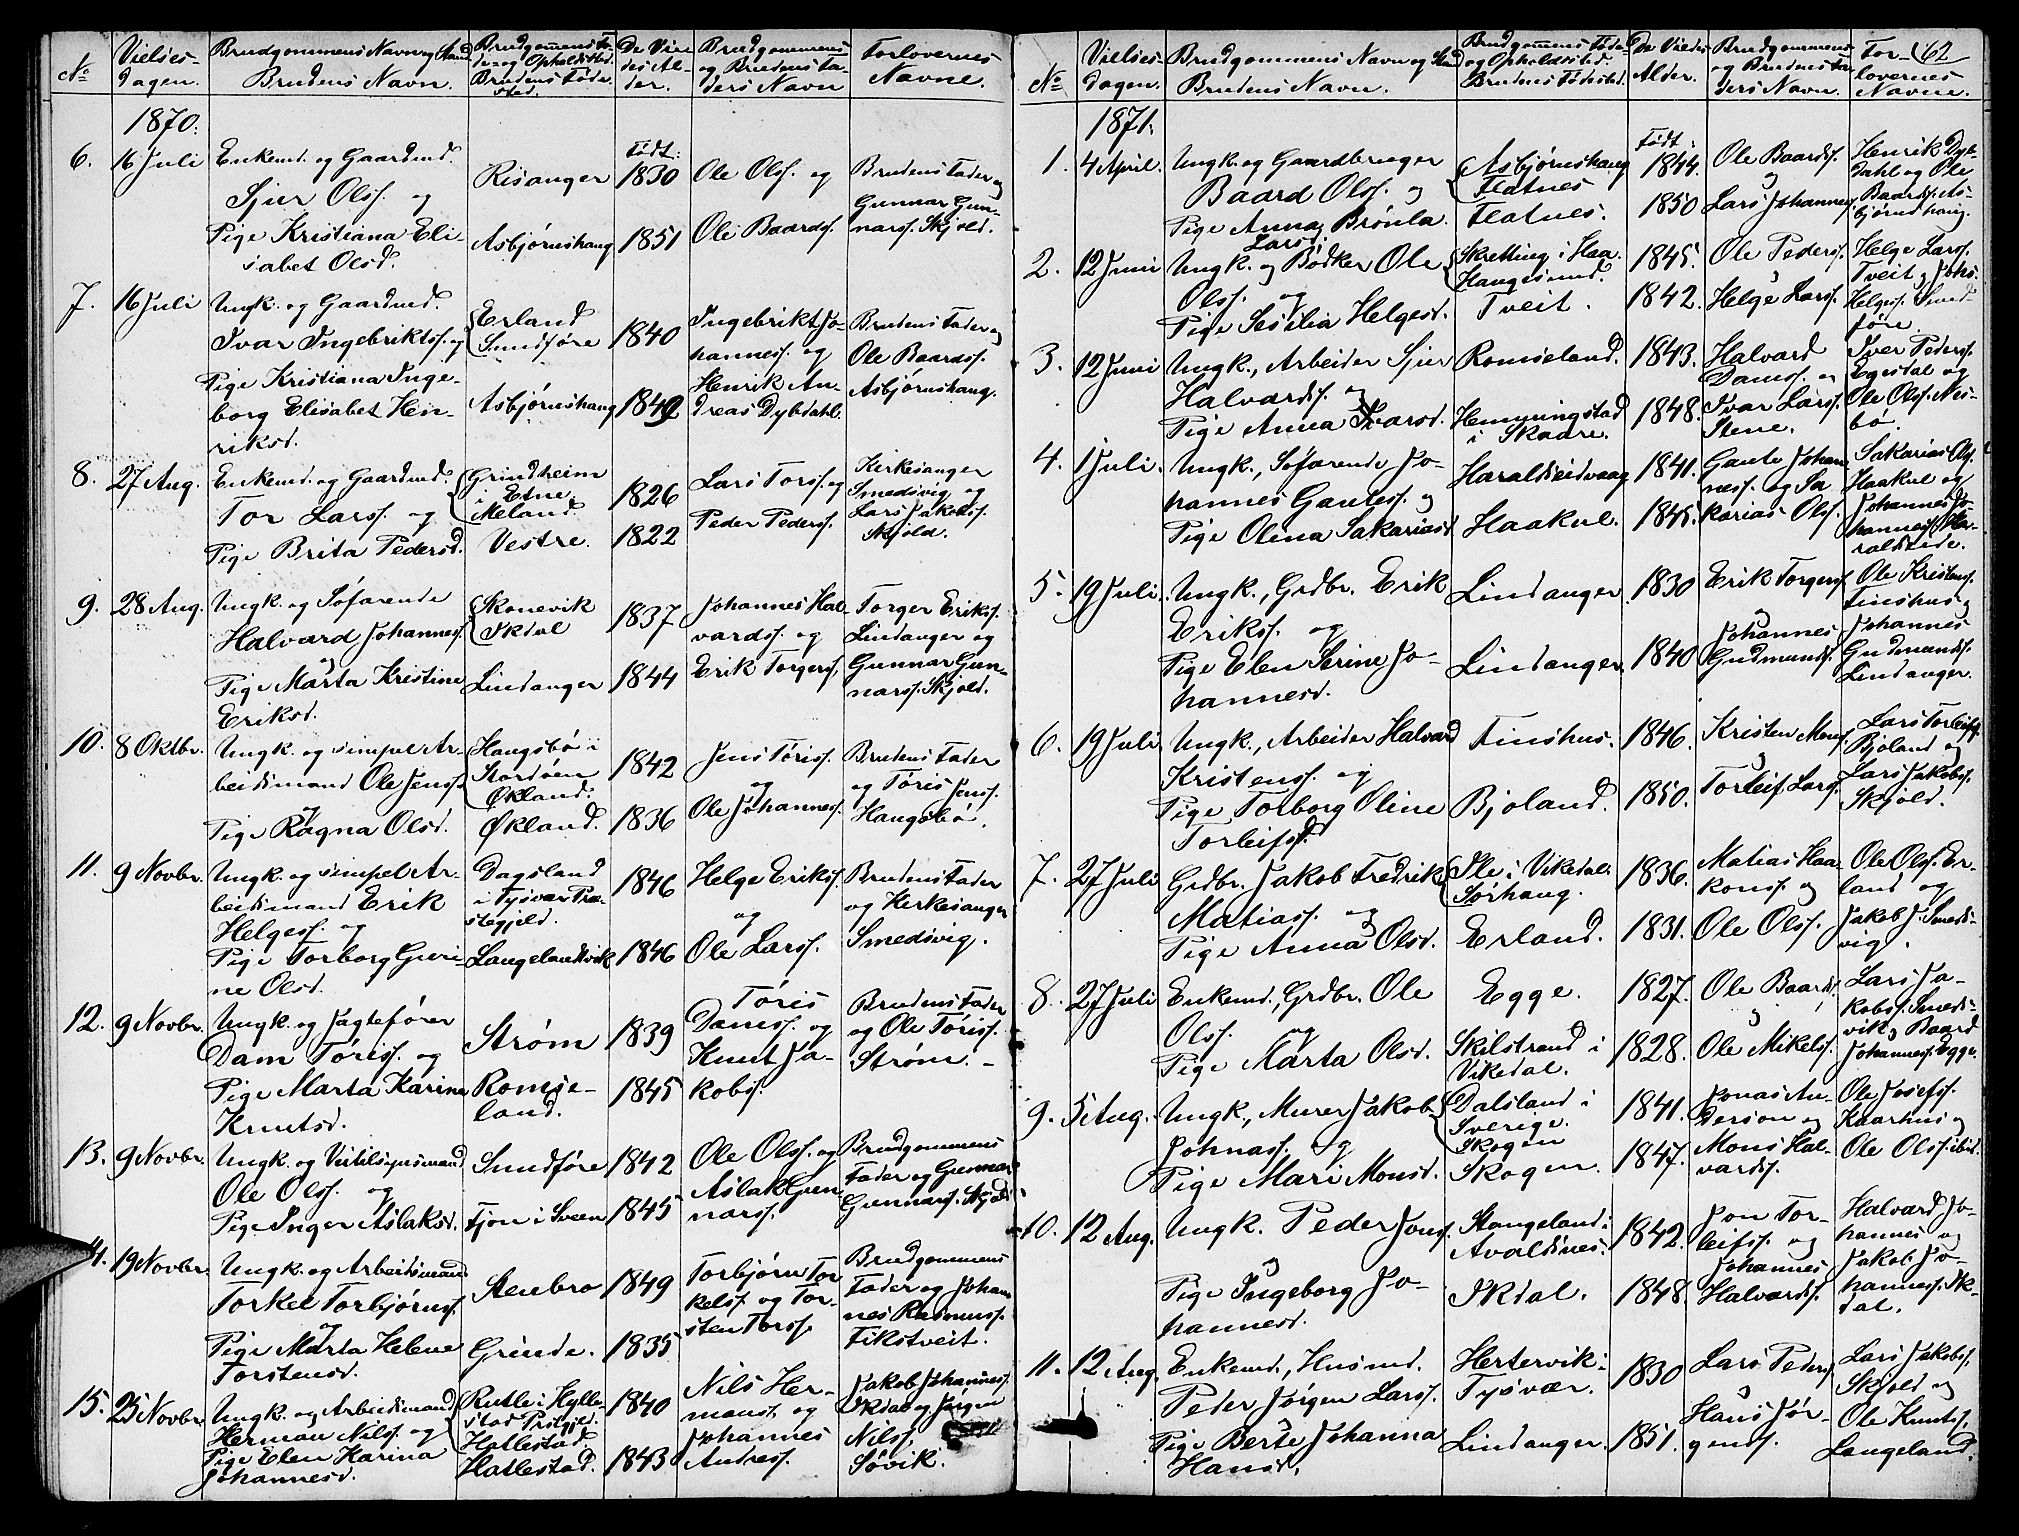 No
Vielses-
dagen.
Brudgommens Navn og Stand
Brudens Navn.
Brudgommens Fø-
de- og Opholdssted.
Brudens Føde-
sted.
De Vie-
des Al-
der.
Brudgommens
og Brudens Fa-
ders Navn
Forlovernes
Navne.
1870.
6. 16 Juli
Enkemd. og Gaardmd.
Sjur Olss. og
Pige Kristiana Eli-
sabet Olsd.
Risanger
Asbjørnshaug
Født:
1830
1851
Ole Olss. og
Ole Baardss.
Brudens Fader og
Gunnar Gun-
narss. Skjold.
7. 16 Juli
Ungk. og Gaardmd.
Ivar Ingebriktss. og
Pige Kristiana Inge-
borg Elisabet Hen-
riksd.
Erland
Sundføre
Asbjørnshaug
1840
1849
Ingebrikt Jo-
hanness. og
Henrik An-
dreas Dybdahl.
Brudens Fader og
Ole Baardss.
Asbjørnshaug.
8. 27 Aug.
Enkemd. og Gaardmd.
Tor Larss. og
Pige Brita Pedersd.
Grindheim
i Etne.
Meland
Vestre.
1826
1822
Lars Torss. og
Peder Pederss.
Kirkesanger
Smedsvig og
Lars Jakobss.
Skjold.
9. 28 Aug.
Ungk. og Søfarende
Halvard Johanness.
og
Pige Marta Kristine
Eriksd.
Skonevik
Ikdal
Lindanger
1837
1844
Johannes Hal-
vardss. og
Erik Torgerss.
Torger Erikss.
Lindanger og
Gunnar Gun-
narss. Skjold.
10. 8 Oktbr.
Ungk. og simpel Ar-
beidsmand Ole Jenss.
og
Pige Ragna Olsd.
Haugsbø i
Stordøen
Økland.
Økland.
1842
1836
Jens Tøriss.
og
Ole Johanness.
Brudens Fader
og Tøris Jenss.
Haugsbø.
11. 9 Novbr.
Ungk. og simpel Ar-
beidsmand Erik
Helgess. og
Pige Torborg Guri-
ne Olsd.
Dagsland
i Tysvær Præ-
stegjeld.
Langelandsvik
1846
1846
Helge Erikss.
og
Ole Larss.
Brudens Fader
og Kirkesanger
Smedsvig.
12. 9 Novbr.
Ungk. og Jagtefører
Dam Tøriss. og
Pige Marta Karina
Knutsd.
Strøm
Romse-
land.
1839
1845
Tøris
Damss. og
Knut Ja-
kobs.
Brudens Fader
og Ole Tøriss.
Strøm.
13. 9 Novbr.
Ungk. og Veitilsynsmand
Ole Olss. og
Pige Inger Aslaksd.
Sundføre
Fjon i Sveen
1842
1845
Ole Olss. og
Aslak Gun-
narss.
Brudgommens
Fader og Gunnar
Gunnarss. Skjold
14. 19 Novbr.
Ungk. og Arbeidsmand
Torkel Torbjørnss.
og
Pige Marta Helene
Torstensd.
Stenbro
Grinde.
1849
1835
Torbjørn Tor-
kelss. og Tor-
sten Torss.
Brudgommens
Fader og Johan-
nes Rasmuss.
Fikstveit.
15. 25 Novbr.
Ungk. og Arbeidsmand
Herman Nilss. og
Pige Elen Karina
Johannesd.
Rutle i Hylle-
stad Præstgjeld.
Hatlestad
Hatlestad.
1840
1843
Nils Her-
manss. og
Johannes
Andress.
Jakob Johanness.
Ikdal og Jørgen
Nilss.
Søvik.
No
Vielses-
dagen.
Brudgommens Navn og Stand
Brudens Navn.
Brudgommens Føde-
og Opholdssted.
Brudens Fødested.
De Viedes
Alder.
Brudgommens
og Brudens Fa-
ders Navn.
For-
lovernes
Navne.
62
1871.
1. 4 April.
Ungk. og Gaardbruger
Baard Olss. og
Pige Anna Brønla
Larsd.
Asbjørnshaug
Flatnes
Flatnes.
Født:
1844.
1850
Ole Baardss.
og
Lars Johanness.
Henrik Dyb-
dahl og Ole
Baardss. As-
bjørnshaug.
2. 12 Juni
Ungk. og Bødker Ole
Olss. og
Pige Sesilia Helgesd.
Skretting i Haa.
Haugesund.
Tveit.
1845.
1842.
Ole Pederss.
Helge Larss.
Helge Larss.
Tveit og Johs.
Helgess. Sund-
føre.
3. 12 Juni
Ungk., Arbeider Sjur
Halvardss. og
Pige Anna Ivarsd.
Romseland.
Hemmingstad
i Skaare.
1843.
1848.
Halvard
Damss. og
Ivar Larss.
Stene.
Iver Pederss.
Egesdal og
Ole Olss. Nes-
bø.
4. 1 Juli.
Ungk., Søfarende Jo-
hannes Gautess. og
Pige Olena Sakariasd.
Haraldseidvaag
Haakul.
1841.
1845.
Gaute Johan-
ness. og Sa-
karias Olss.
Sakarias Olss.
Haakul og
Johannes Jo-
hanness. Ha-
raldseide.
5. 19 Juli.
Ungk., Grdbr. Erik
Erikss. og
Pige Elen Serine Jo-
hannesd.
Lindanger
Lindanger
1830
1840
Erik Torgerss.
Johannes
Gudmundss.
Ole Kristenss.
Finshus og
Johannes
Gudmundss.
Lindanger.
6. 19 Juli
Ungk., Arbeider Halvard
Kristenss. og
Pige Torborg Oline
Torleifsd.
Finshus.
Bjoland.
1846.
1850.
Kristen Monss.
og
Torleif Larss.
Lars Torleifss.
Bjoland og
Lars Jakobss.
Skjold.
7. 27 Juli
Grdbr. Jakob Fredrik
Matiass. og
Pige Anna Olsd.
Ile i Vikedal.
Sørhaug.
Erland.
1836.
1831.
Matias Haa-
konss. og
Ole Olss.
Ole Olss. Er-
land og
Jakob J. Smeds-
vig.
8. 27 Juli
Enkemd., Grdbr. Ole
Olss. og
Pige Marta Olsd.
Egge.
Skilstrand i
Vikedal.
1827.
1828.
Ole Baardss.
og
Ole Mikelss.
Lars Ja-
kobss. Smeds-
vik og Baard
Johanness. Egge.
9. 5 Aug.
Ungk., Murer Jakob
Johnass. og
Pige Mari Monsd.
Dalsland i
Sverige.
Skogen
Skogen.
1841.
1847.
Jonas An-
derson og
Mons Hal-
vardss.
Ole Josefss.
Kaarhus og
Ole Olss. ibid.
10. 12 Aug.
Ungk. Peder Jonss.
og
Pige Ingeborg Jo-
hannesd.
Stangeland i
Avaldsnes.
Ikdal.
1842.
1848.
Jon Tor-
leifss. og
Johannes
Halvardss.
Halvard Jo-
hannes og
Jakob Jo-
hanness. Ik-
dal.
11. 12 Aug.
Enkemd., Husmd.
Peder Jørgen Larss.
og
Pige Berte Johanna
Hansd.
Hertervik i
Tysvær.
Lindanger.
1830
1851.
Lars Pederss.
og
Hans Jør-
genss.
Lars Jakobss.
Skjold og
Ole Knutss.
Langeland.